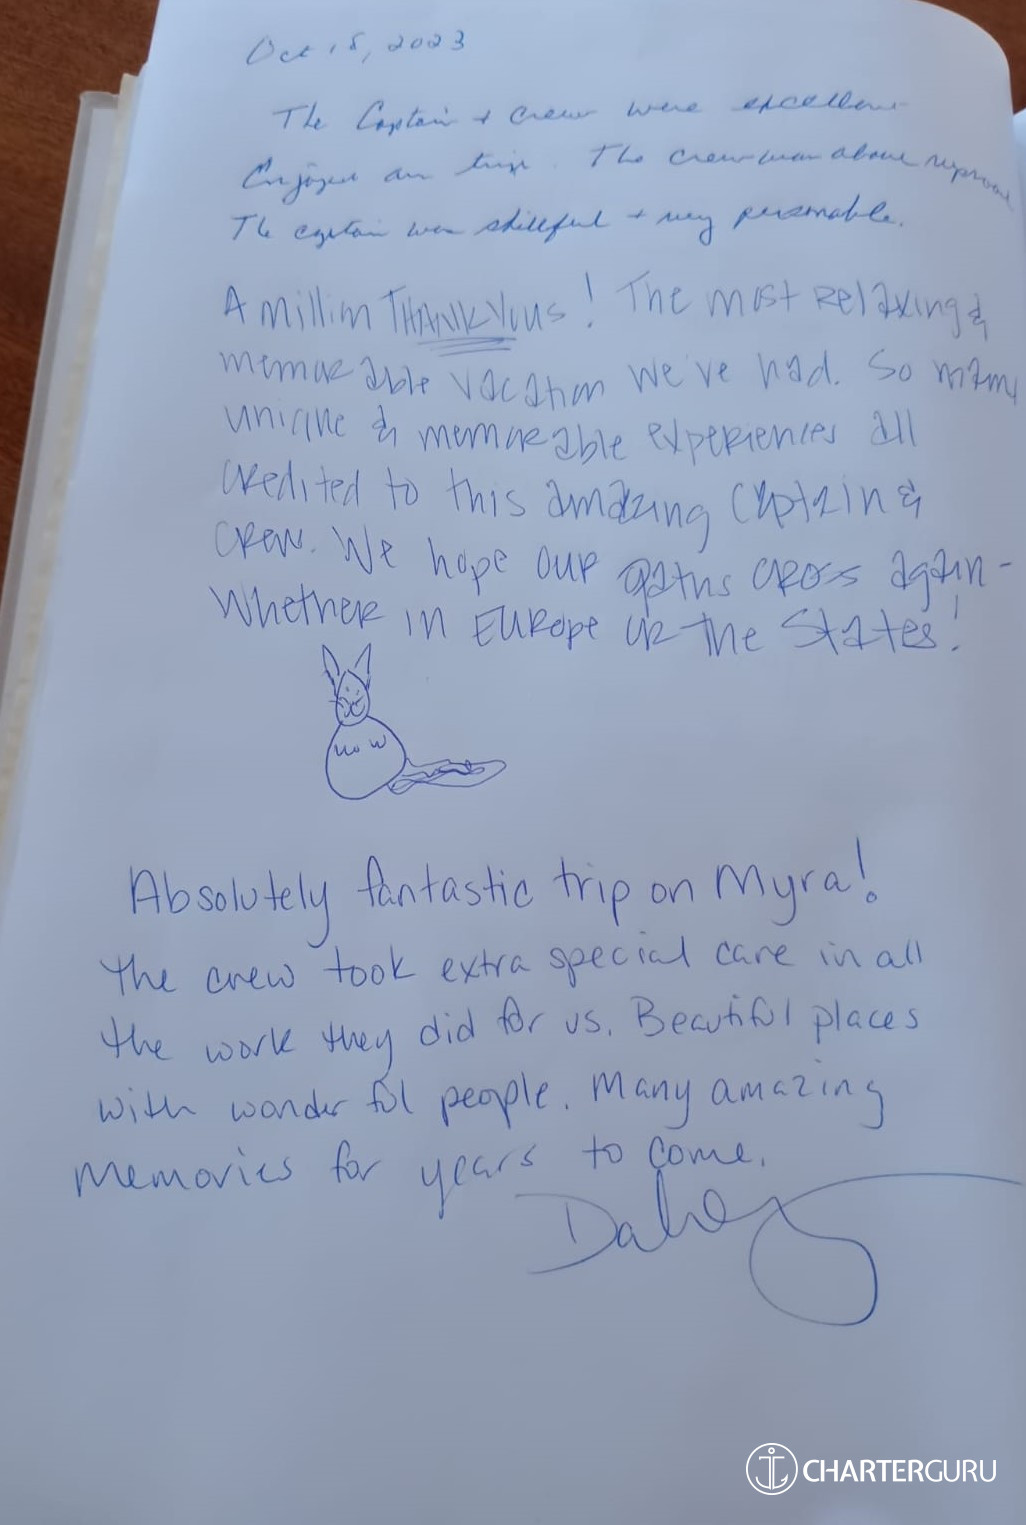 Oct 18, 2023
The Captain + crew were excellent
Enjoyed our trip. The crew was above reproach
The captain was skillful + very personable.
A million THANK YOUS! The most relaxing &
memorable vacation we've had. So many
unique & memorable experiences all
credited to this amazing Captain &
crew. We hope our paths cross again -
Whether in Europe or the States!
Absolutely fantastic trip on Myra!
The crew took extra special care in all
the work they did for us. Beautiful places
with wonderful people. Many amazing
memories for years to come.
CHARTERGURU